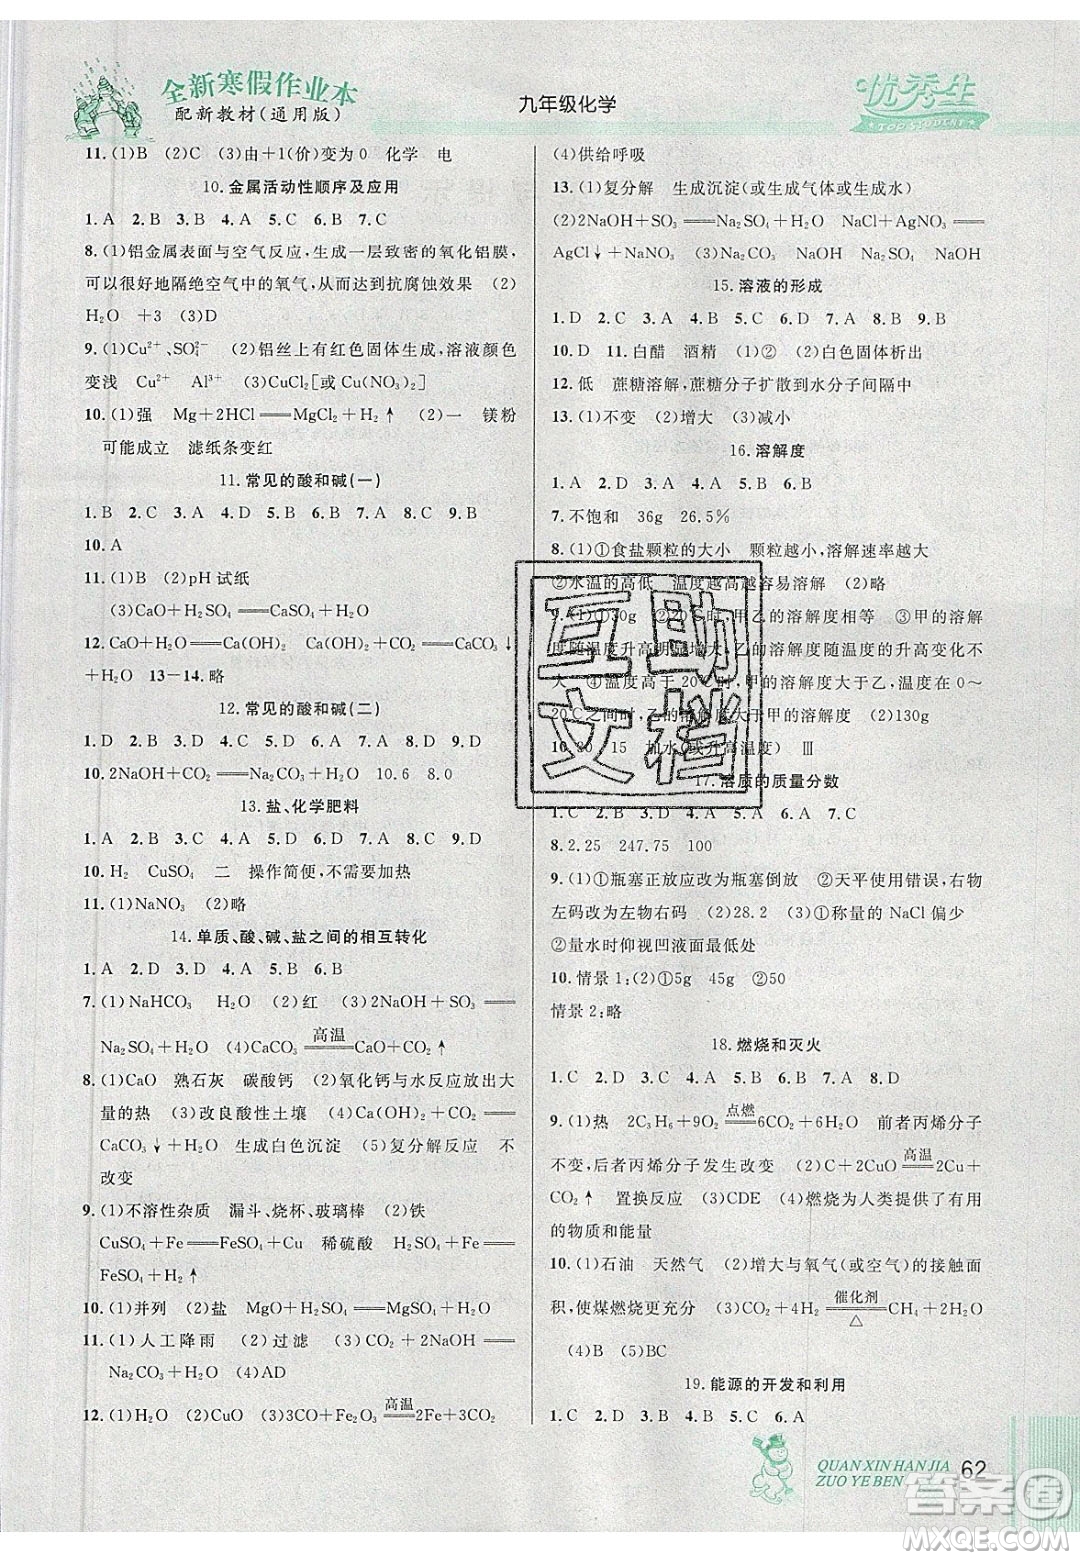 全新寒假作业本
配新教材(通用版)
九年级化学
优秀生
TOP STUDENT
11.(1)B (2)C (3)由+1(价)变为0 化学 电
10.金属活动性顺序及应用
1.A 2.B 3.B 4.A 5.C 6.B 7.C
8.(1)铝金属表面与空气反应,生成一层致密的氧化铝膜,
可以很好地隔绝空气中的氧气,从而达到抗腐蚀效果 (2)
H₂O +3 (3)D
9.(1)Cu²⁺、SO₄²⁻ (2)铝丝上有红色固体生成,溶液颜色
变浅 Cu²⁺ Al³⁺ (3)CuCl₂[或Cu(NO₃)₂]
10.(1)强 Mg+2HCl══MgCl₂+H₂↑ (2)一 镁粉
可能成立 滤纸条变红
11.常见的酸和碱(一)
1.B 2.C 3.A 4.D 5.C 6.A 7.B 8.D 9.C
10.A
11.(1)B (2)pH试纸
(3)CaO+H₂SO₄══CaSO₄+H₂O
12.CaO+H₂O══Ca(OH)₂ Ca(OH)₂+CO₂══CaCO₃↓
+H₂O 13-14.略
12.常见的酸和碱(二)
1.D 2.D 3.D 4.D 5.A 6.B 7.D 8.D 9.D
10.2NaOH+CO₂══Na₂CO₃+H₂O 10.6 8.0
13.盐、化学肥料
1.A 2.B 3.C 4.D 5.A 6.A 7.A 8.A 9.A
10.H₂ CuSO₄ 二 操作简便,不需要加热
11.(1)NaNO₃ (2)略
14.单质、酸、碱、盐之间的相互转化
1.A 2.D 3.D 4.A 5.C 6.D
7.(1)NaHCO₃ H₂O (2)红 (3)2NaOH+SO₃══
Na₂SO₄+H₂O (4)CaCO₃ 高温══ CaO+CO₂↑
8.(1)CaO 熟石灰 碳酸钙 (2)氧化钙与水反应放出大
量的热 (3)改良酸性土壤 (4)Ca(OH)₂+CO₂══
CaCO₃↓+H₂O 生成白色沉淀 (5)复分解反应 不
改变
9.(1)不溶性杂质 漏斗、烧杯、玻璃棒 (2)铁
CuSO₄+Fe══FeSO₄+Cu 稀硫酸 H₂SO₄+Fe══
FeSO₄+H₂↑
10.(1)并列 (2)盐 MgO+H₂SO₄══MgSO₄+H₂O
11.(1)人工降雨 (2)过滤 (3)CO₂+2NaOH══
Na₂CO₃+H₂O (4)AD
12.(1)H₂O (2)CuO (3)3CO+Fe₂O₃ 高温══ 2Fe+3CO₂
(4)供给呼吸
13.(1)复分解 生成沉淀(或生成气体或生成水)
(2)2NaOH+SO₃══Na₂SO₄+H₂O NaCl+AgNO₃══
AgCl↓+NaNO₃ NaOH Na₂SO₄ NaCl
15.溶液的形成
1.D 2.C 3.A 4.B 5.D 6.C 7.B 8.C 9.B
10.D 11.白醋 酒精 (1)② (2)白色固体析出
12.低 蔗糖溶解,蔗糖分子扩散到水分子间隔中
13.(1)不变 (2)增大 (3)减小
16.溶解度
1.A 2.D 3.A 4.D 5.B 6.B
7.不饱和 36g 26.5%
8.(1)①食盐颗粒的大小 颗粒越小,溶解速率越大
②水温的高低 温度越高越容易溶解 (2)略
9.(1)①30g ②20℃时,甲乙的溶解度相等 ③甲的溶解
度随温度升高明显增大,乙的溶解度随温度的升高变化不
大 ④温度高于20℃时,甲的溶解度大于乙,在0~
20℃之间时,乙的溶解度大于甲的溶解度 (2)130g
10.20 15 加水(或升高温度) Ⅲ
17.溶质的质量分数
1.C 2.B 3.C 4.A 5.D 6.A 7.B
8.2.25 247.75 100
9.(1)①瓶塞正放应改为瓶塞倒放 ②天平使用错误,右物
左码改为左物右码 (2)28.2 (3)①称量的NaCl偏少
②量水时仰视凹液面最低处
10.情景1:(2)①5g 45g ②50
情景2:略
18.燃烧和灭火
1.C 2.D 3.D 4.A 5.B 6.B 7.A 8.D
9.(1)热 2C₃H₆+9O₂ 点燃══ 6CO₂+6H₂O 前者丙烯分子
不变,后者丙烯分子发生改变 (2)C+2CuO 高温══ 2Cu+
CO₂↑ 置换反应 (3)CDE (4)燃烧为人类提供了有用
的物质和能量
10.(1)石油 天然气 (2)增大与氧气(或空气)的接触面
积,使煤燃烧更充分 (3)CO₂+4H₂ 催化剂══△ CH₄+2H₂O
(4)B (5)BC
19.能源的开发和利用
1.C 2.D 3.D 4.C 5.C 6.A
QUAN XIN HAN JIA
ZUO YE BEN
62
互助
文档
答案圈
MXQE.COM